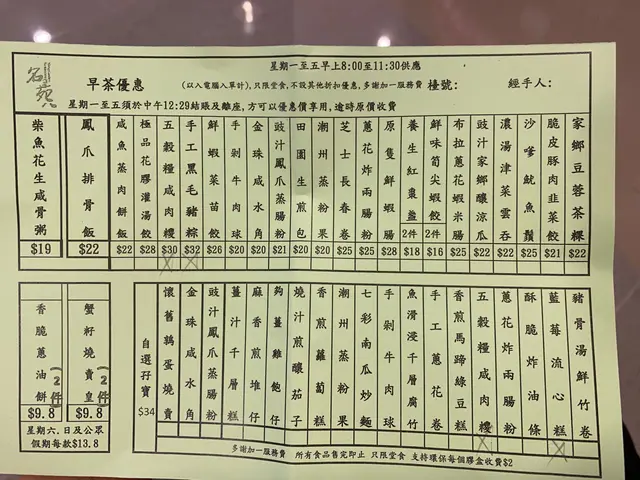 星期一至五早上8:00至11:30供應
名苑
早茶優惠
(以入電腦入單計),只限堂食,不設其他折扣優惠,多謝加一服務費
檯號:
經手人:
星期一至五須於中午12:29結賬及離座,方可以優惠價享用,逾時原價收費
柴魚花生咸骨粥 $19
鳳爪排骨飯 $22
咸魚蒸肉餅飯 $22
極品花膠灌湯餃 $28
五穀糧咸肉糭 $30
手工黑毛豬糉 $32
鮮蝦菜苗餃 $26
手剁牛肉球 $20
金珠咸水角 $20
豉汁鳳爪蒸腸粉 $21
田園生煎包 $20
潮州蒸粉果 $20
芝士長春卷 $25
蔥花炸兩腸 $25
原隻鮮蝦腸 $28
養生紅棗盞 2件 $18
鮮味筍尖蝦餃 2件 $16
布拉蔥花蝦米腸 $25
豉汁家鄉釀涼瓜 $22
濃湯津菜雲吞 $22
沙嗲魷魚鬚 $25
脆皮豚肉韭菜餃 $21
家鄉豆蓉茶粿 $22
香脆蔥油餅(2件) $9.8
蟹籽燒賣皇(2件) $9.8
星期六、日及公眾
假期每款$13.8
自選孖寶 $34
懷舊鵪蛋燒賣
金珠咸水角
豉汁鳳爪蒸腸粉
薑汁千層糕
麻香煎堆仔
夠薑雞飽仔
燒汁煎釀茄子
香煎蘿蔔糕
潮州蒸粉果
七彩南瓜炒麵
手剁牛肉球
魚滑浸千層腐竹
手工蔥花卷
香煎馬蹄綠豆糕
五穀糧咸肉糭
蔥花炸兩腸粉
酥脆炸油條
藍莓流心糕
豬骨湯鮮竹卷
多謝加一服務費 所有食品售完即止 只限堂食 支持環保每個膠盒收費$2